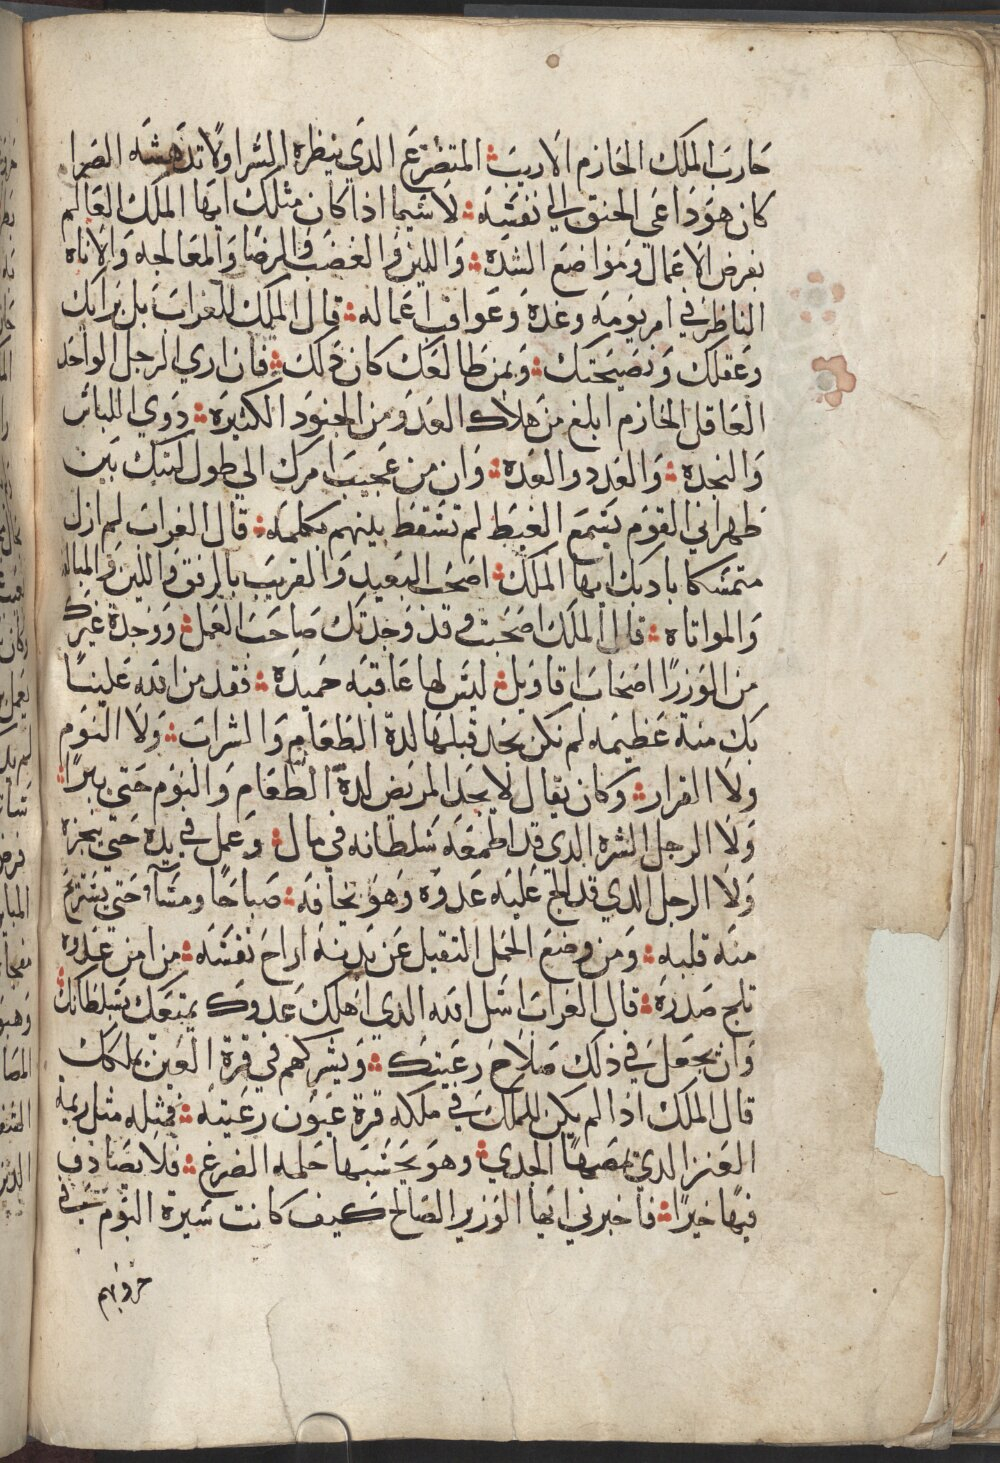 حارب الملك الحازم الاريب المتضرع الذي ينظره الشرا ولا تدهشه الضرا
كان هو داعي الحنق الي نفسه لا سيما اذا كان مثلك ايها الملك العالم
بفرض الاعمال ومواضع الشدة واللين والغضب والرضا والمعالجه والاناه
الناظر في امر يومه وغده وعواقب اعماله قال الملك للغراب بل برايك
وعقلك ونصيحتك وبمن طالعك كان ذلك فان اري الرجل الواحد
العاقل الحازم ابلغ من هلاك العدو من الجنود الكثيره ذوي الباس
والنجدة والعدد والعدة وان من عجيب امرك الي طول لبثك بين
ظهراني القوم تسمع الغيظ لم تسقط بينهم بكلمه قال الغراب لم ازل
متمسكا بادبك ايها الملك اصحب البعيد والقريب بالرفق واللين والمبالغه
والمواتاه قال الملك اصحت وقد وجدتك صاحب العمل ووجدة غيرك
من الوزرا اصحاب اقاويل ليس لها عاقبه حميده فقد من الله علينا
بك منة عظيمه لم نكن نجد قبلها لدة الطعام والشراب ولا النوم
ولا القرار وكان يقال لا يجد المريض لدة الطعام والنوم حتي يبرا
ولا الرجل الشره الدي قد اطمعه سلطانه في مال وعمل في يده حتي ينجزه
ولا الرجل الدي قد الح عليه عدوه وهو يخافه صباحا ومسآء حتي يستريح
منه قلبه ومن وضع الحمل الثقيل عن بدنه اراح نفسه من امن عدوه
ثلج صدره قال الغراب اسل الله الدي اهلك عدوك يمتعك بسلطانك
وان يجعل في ذلك صلاح رعيتك ويشركهم في قرة العين بملكك
قال الملك اذا لم يكن للملك في ملكه قرة عيون رعيته فمثله مثل زنمة
العنز الدي يمصها الجدي وهو يحسبها حلمه الضرع فلا يصادف
فيها خيرا فاخبرني ايها الوزير الصالح كيف كانت سيرة البوم في
حروبهم